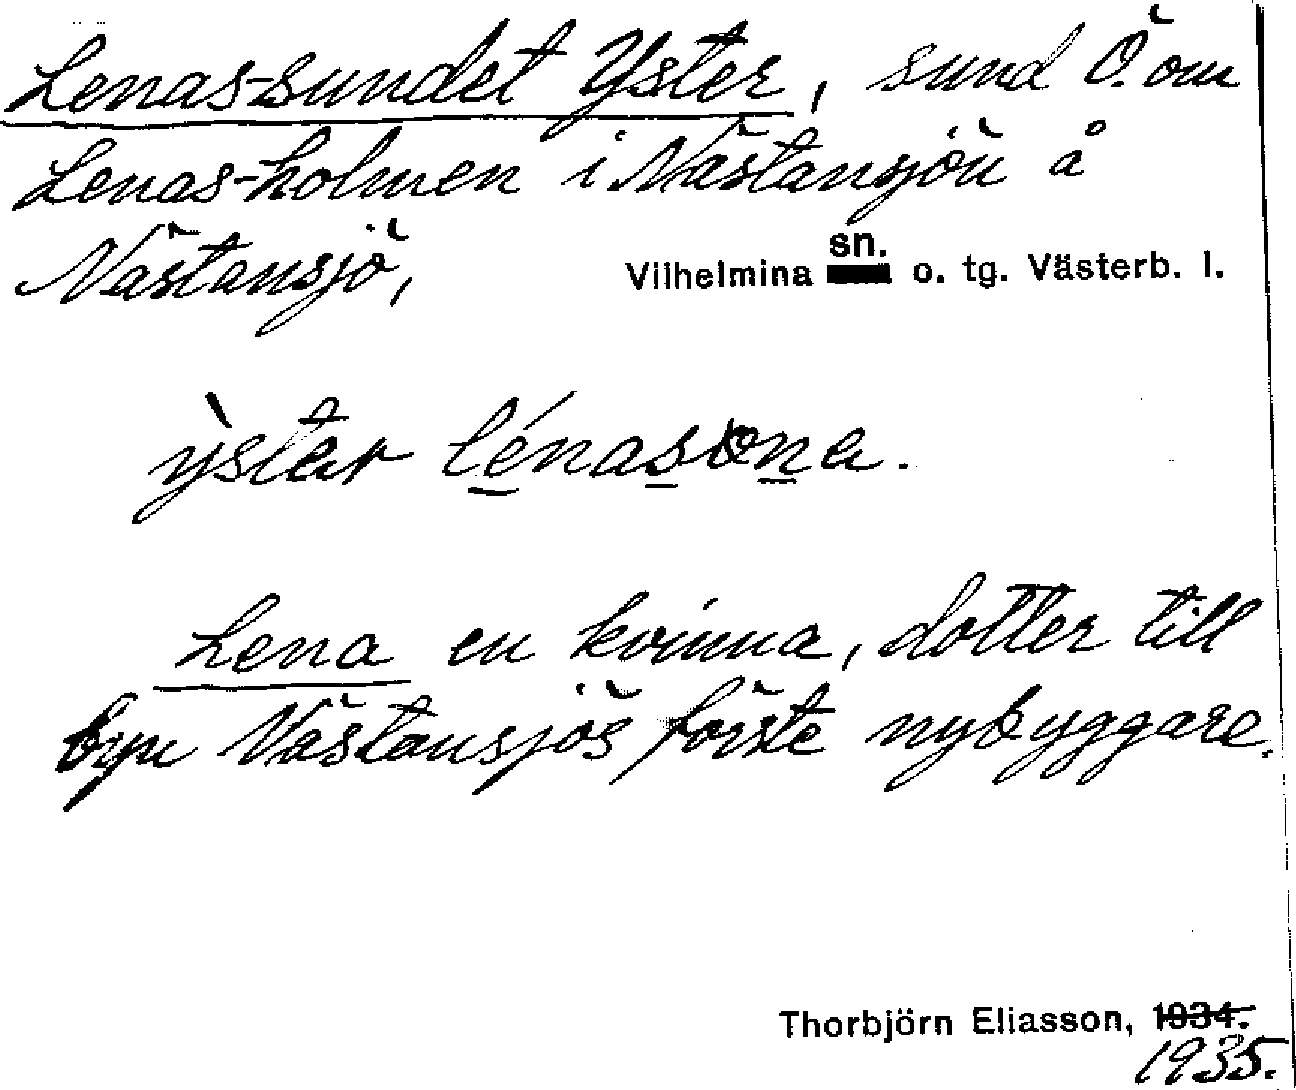 Lenas-sundet Yster, sund Ö. om
Lenas-holmen i Nästansjön å
Nästansjö, Vilhelmina sn. o. tg. Västerb. l.
ỳstar lénasɷna.
Lena en kvinna, dotter till
byn Nästansjös förste nybyggare.
Thorbjörn Eliasson, 1934.
1935.